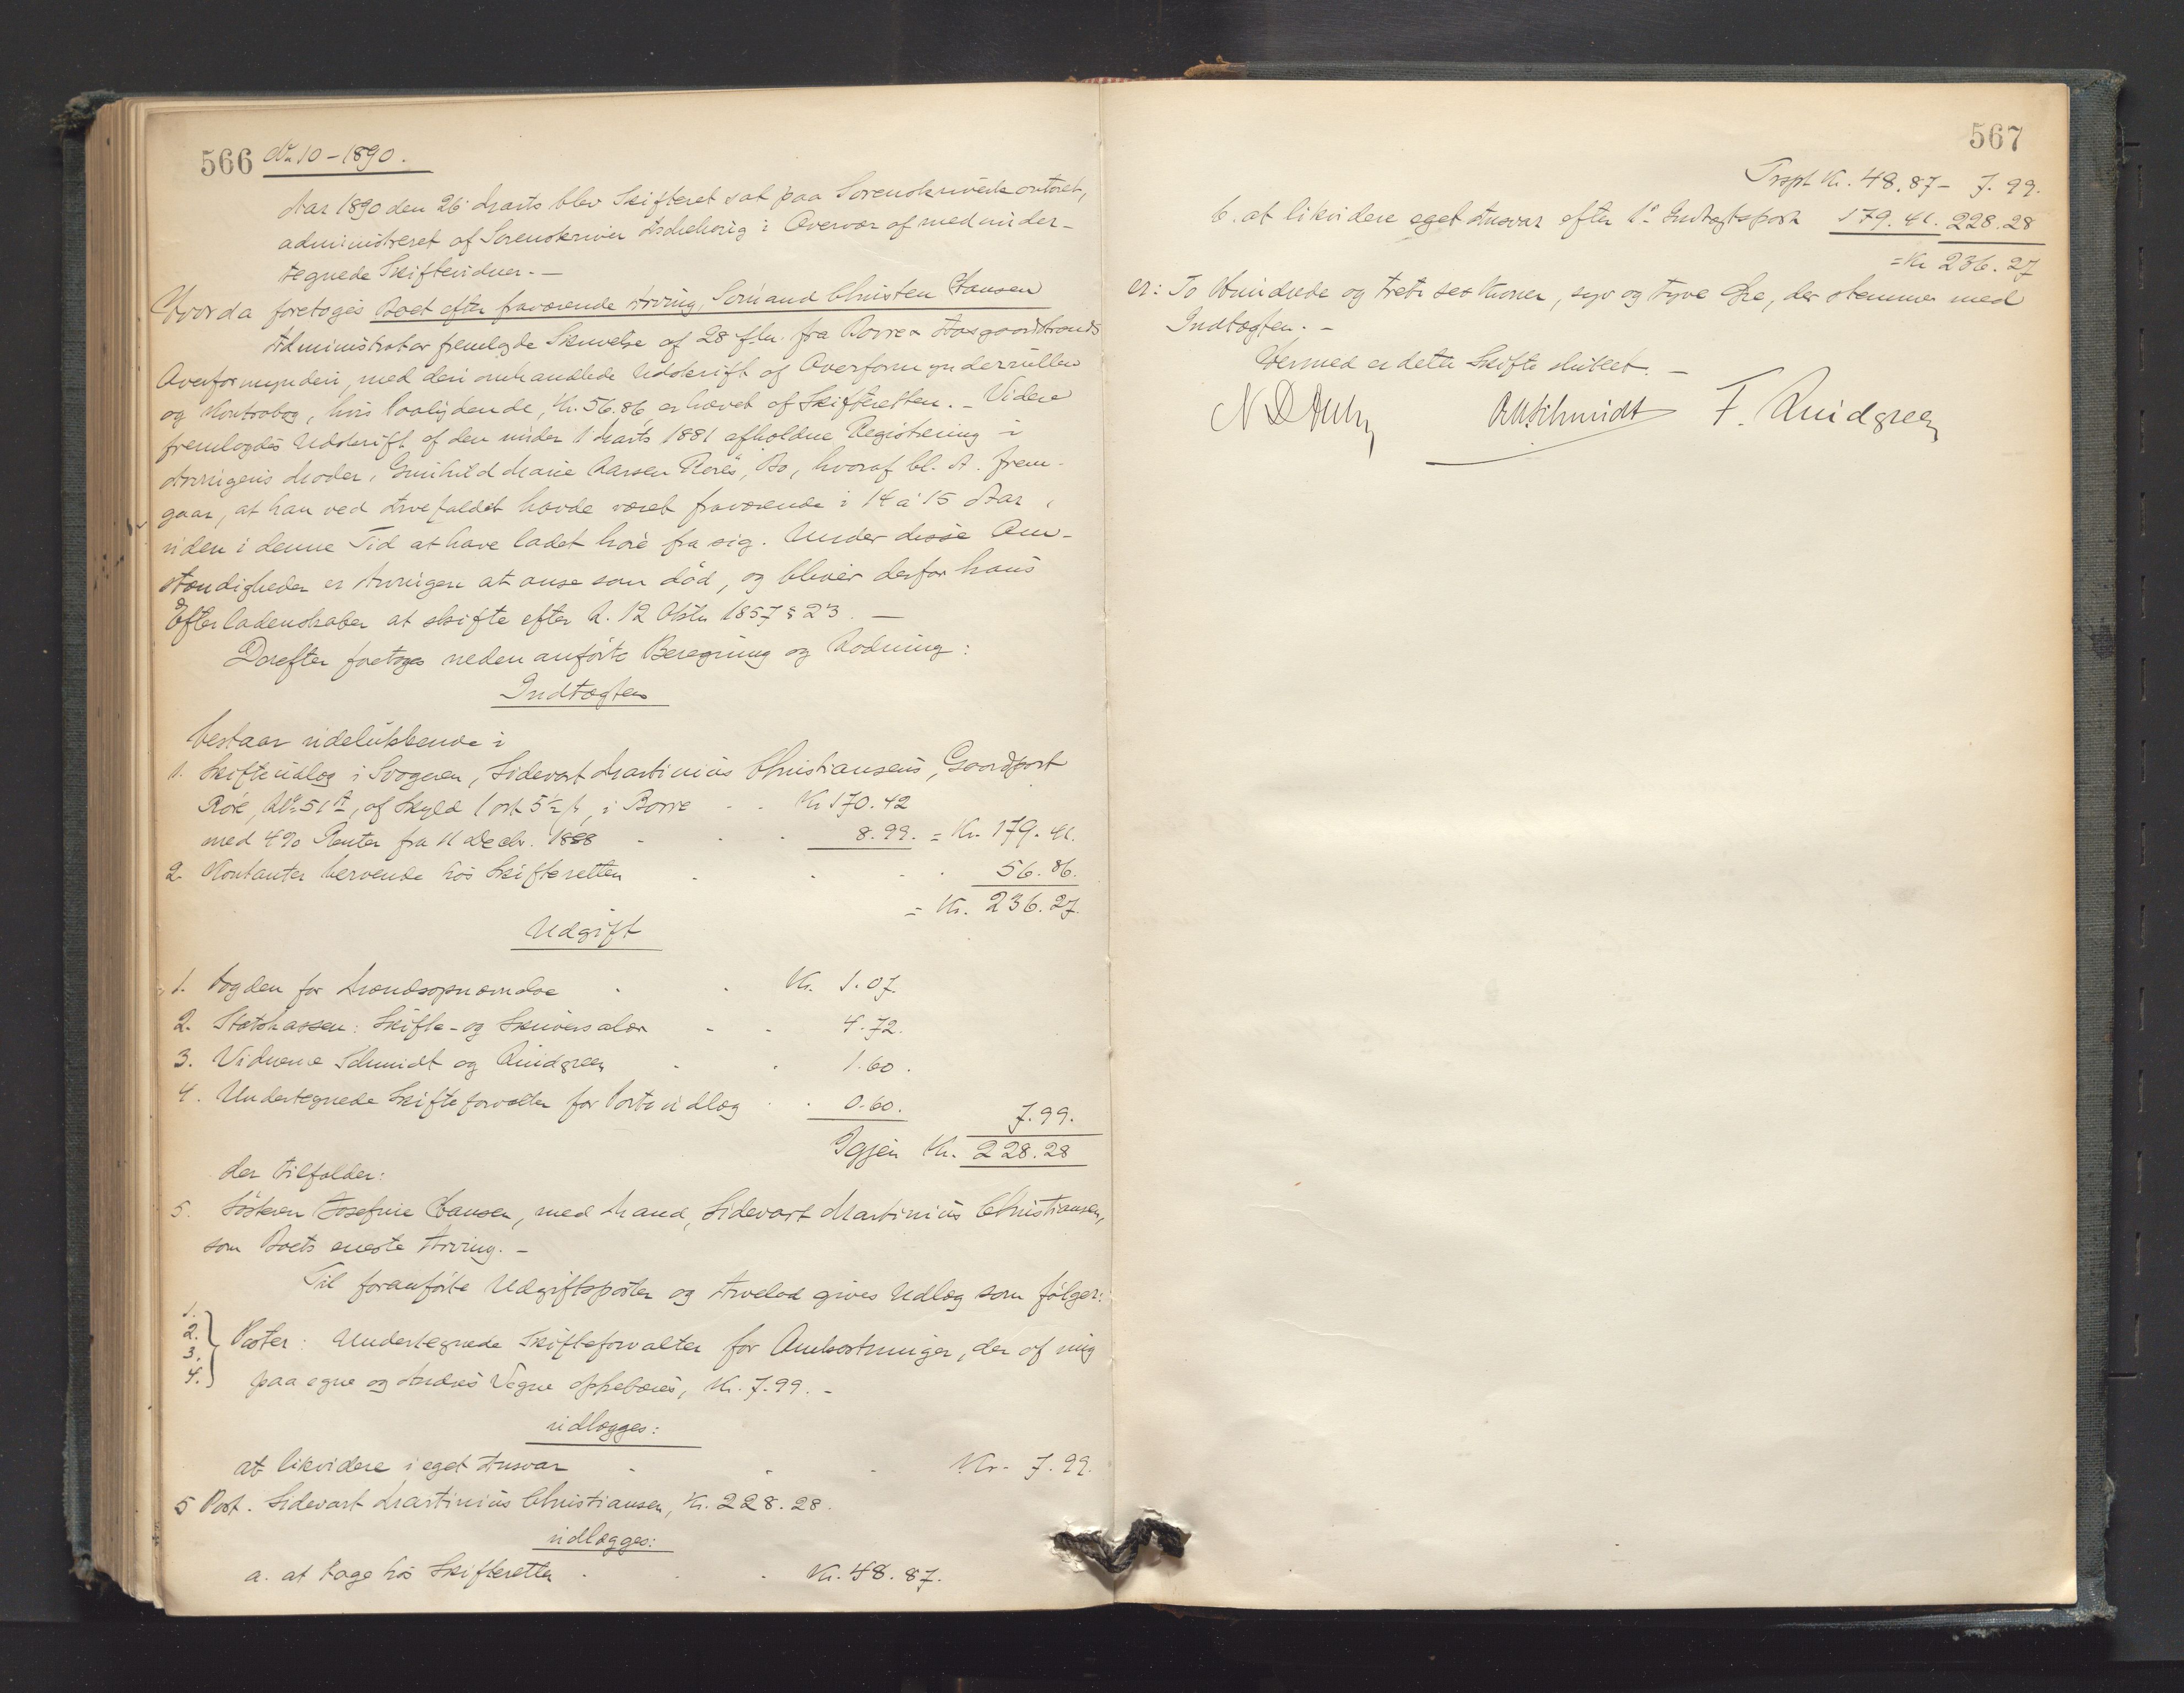 566 No 10 - 1890.
Aar 1890 den 26 Marts blev Skifteret sat paa Sorenskriverkontoret,
administreret af Sorenskriver Aschehoug i Overvær af medunder-
tegnede Skiftevidner. -
Hvorda foretoges Boet efter fraværende Arving, Sømand Christen Hansen
Administrator fremlagde Skrivelse af 28 f. M. fra Borre & Aasgaardstrands
Overformynderi, med deri omhandlede Udskrift af Overformynderrullen
og Kontrabog, hvis Paalydende, Kr. 56.86, er hævet af Skifteretten. - Videre
fremlagdes Udskrift af den under 1 Marts 1881 afholdne Registrering i
Arvingens Moder, Gunhild Marie Larsen Rørés, Bo, hvoraf bl. A. frem-
gaar, at han ved Arvefaldet havde været fraværende i 14 à 15 Aar,
uden i denne Tid at have ladet høre fra sig. Under disse Om-
stændigheder er Arvingen at anse som død, og bliver derfor hans
Efterladenskaber at skifte efter L. 12 Oktbr 1857 § 23. -
Derefter foretoges nedenanførte Beregning og Lodning:
Indtægten
bestaar udelukkende i
1. Skifteudlæg i Svogeren, Sidevart Martinius Christiansens, Gaardpart
Røre, No 51 a, af Skyld 1 ort 5 1/2 ß, i Borre - - Kr 170.42
med 4% Renter fra 11 Decbr. 1888 - - - 8.99. = Kr. 179.41.
2. Kontanter beroende hos Skifteretten - - - - 56.86.
= Kr. 236.27.
Udgift
1. Fogden for Mændsopnævnelse - - Kr. 1.07.
2. Statskassen: Skifte- og Skriversalær - - 4.72.
3. Vidnerne Schmidt og Lindgreen - - 1.60.
4. Undertegnede Skifteforvalter for Portoudlæg - - 0.60. 7.99.
Igjen Kr. 228.28
der tilfalder:
5. Søsteren Josefine Hansen, med Mand, Sidevart Martinius Christiansen,
som Boets eneste Arving. -
Til foranførte Udgiftsposter og Arvelod gives Udlæg som følger:
1.
2.
3.
4.
Poster: Undertegnede Skifteforvalter for Omkostninger, der af mig
paa egne og Andres Vegne oppebæres, Kr. 7.99. -
udlægges:
at likvidere i eget Ansvar - - - Kr. 7.99.
5 Post. Sidevart Martinius Christiansen, Kr. 228.28.
udlægges:
a. at tage hos Skifteretten - - - Kr. 48.87.
567
Trspt Kr. 48.87 - 7.99.
b. at likvidere eget Ansvar efter 1ste Indtægtspost 179.41. 228.28
= Kr 236.27
er: To Hundrede og treti sex Kroner, syv og tyve Øre, der stemmer med
Indtægten. -
Hermed er dette Skifte sluttet. -
Schmidt F. Lindgreen